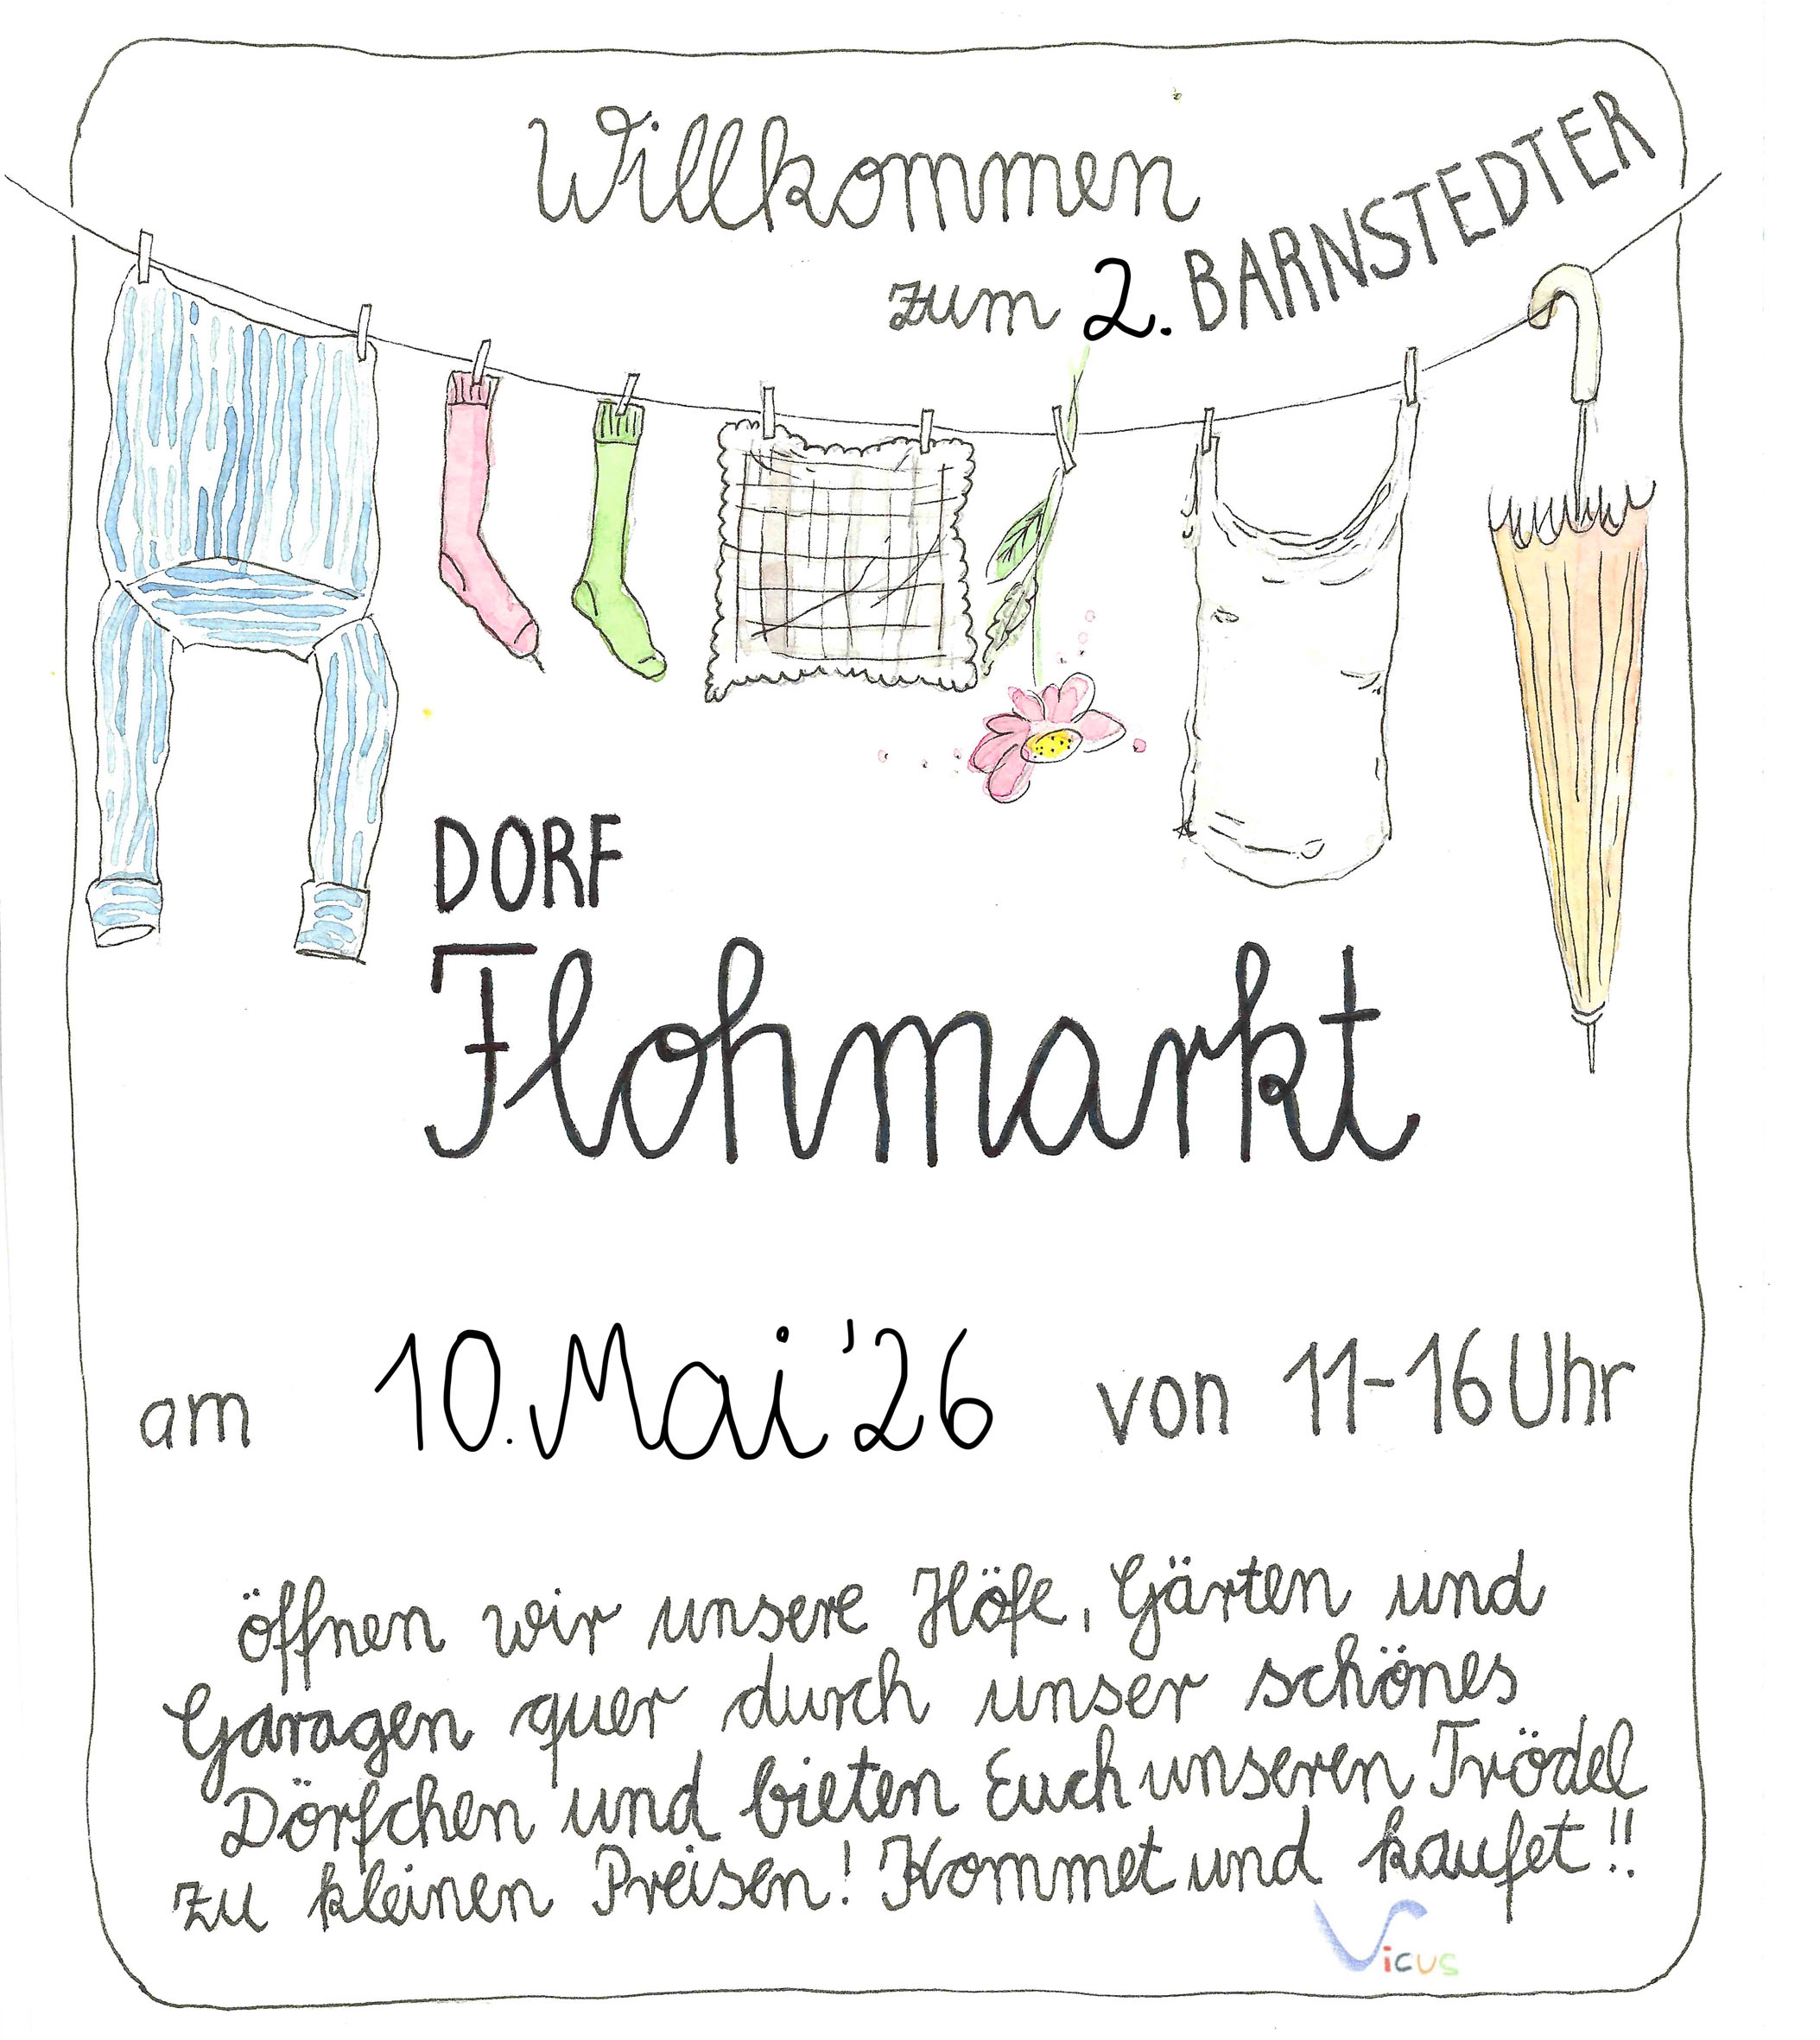 Willkommen
zum 2. BARNSTEDTER
DORF
Flohmarkt
am 10. Mai '26 von 11-16 Uhr
öffnen wir unsere Höfe, Gärten und
Garagen quer durch unser schönes
Dörfchen und bieten Euch unseren Trödel
zu kleinen Preisen! Kommet und kaufet!!
Vicus